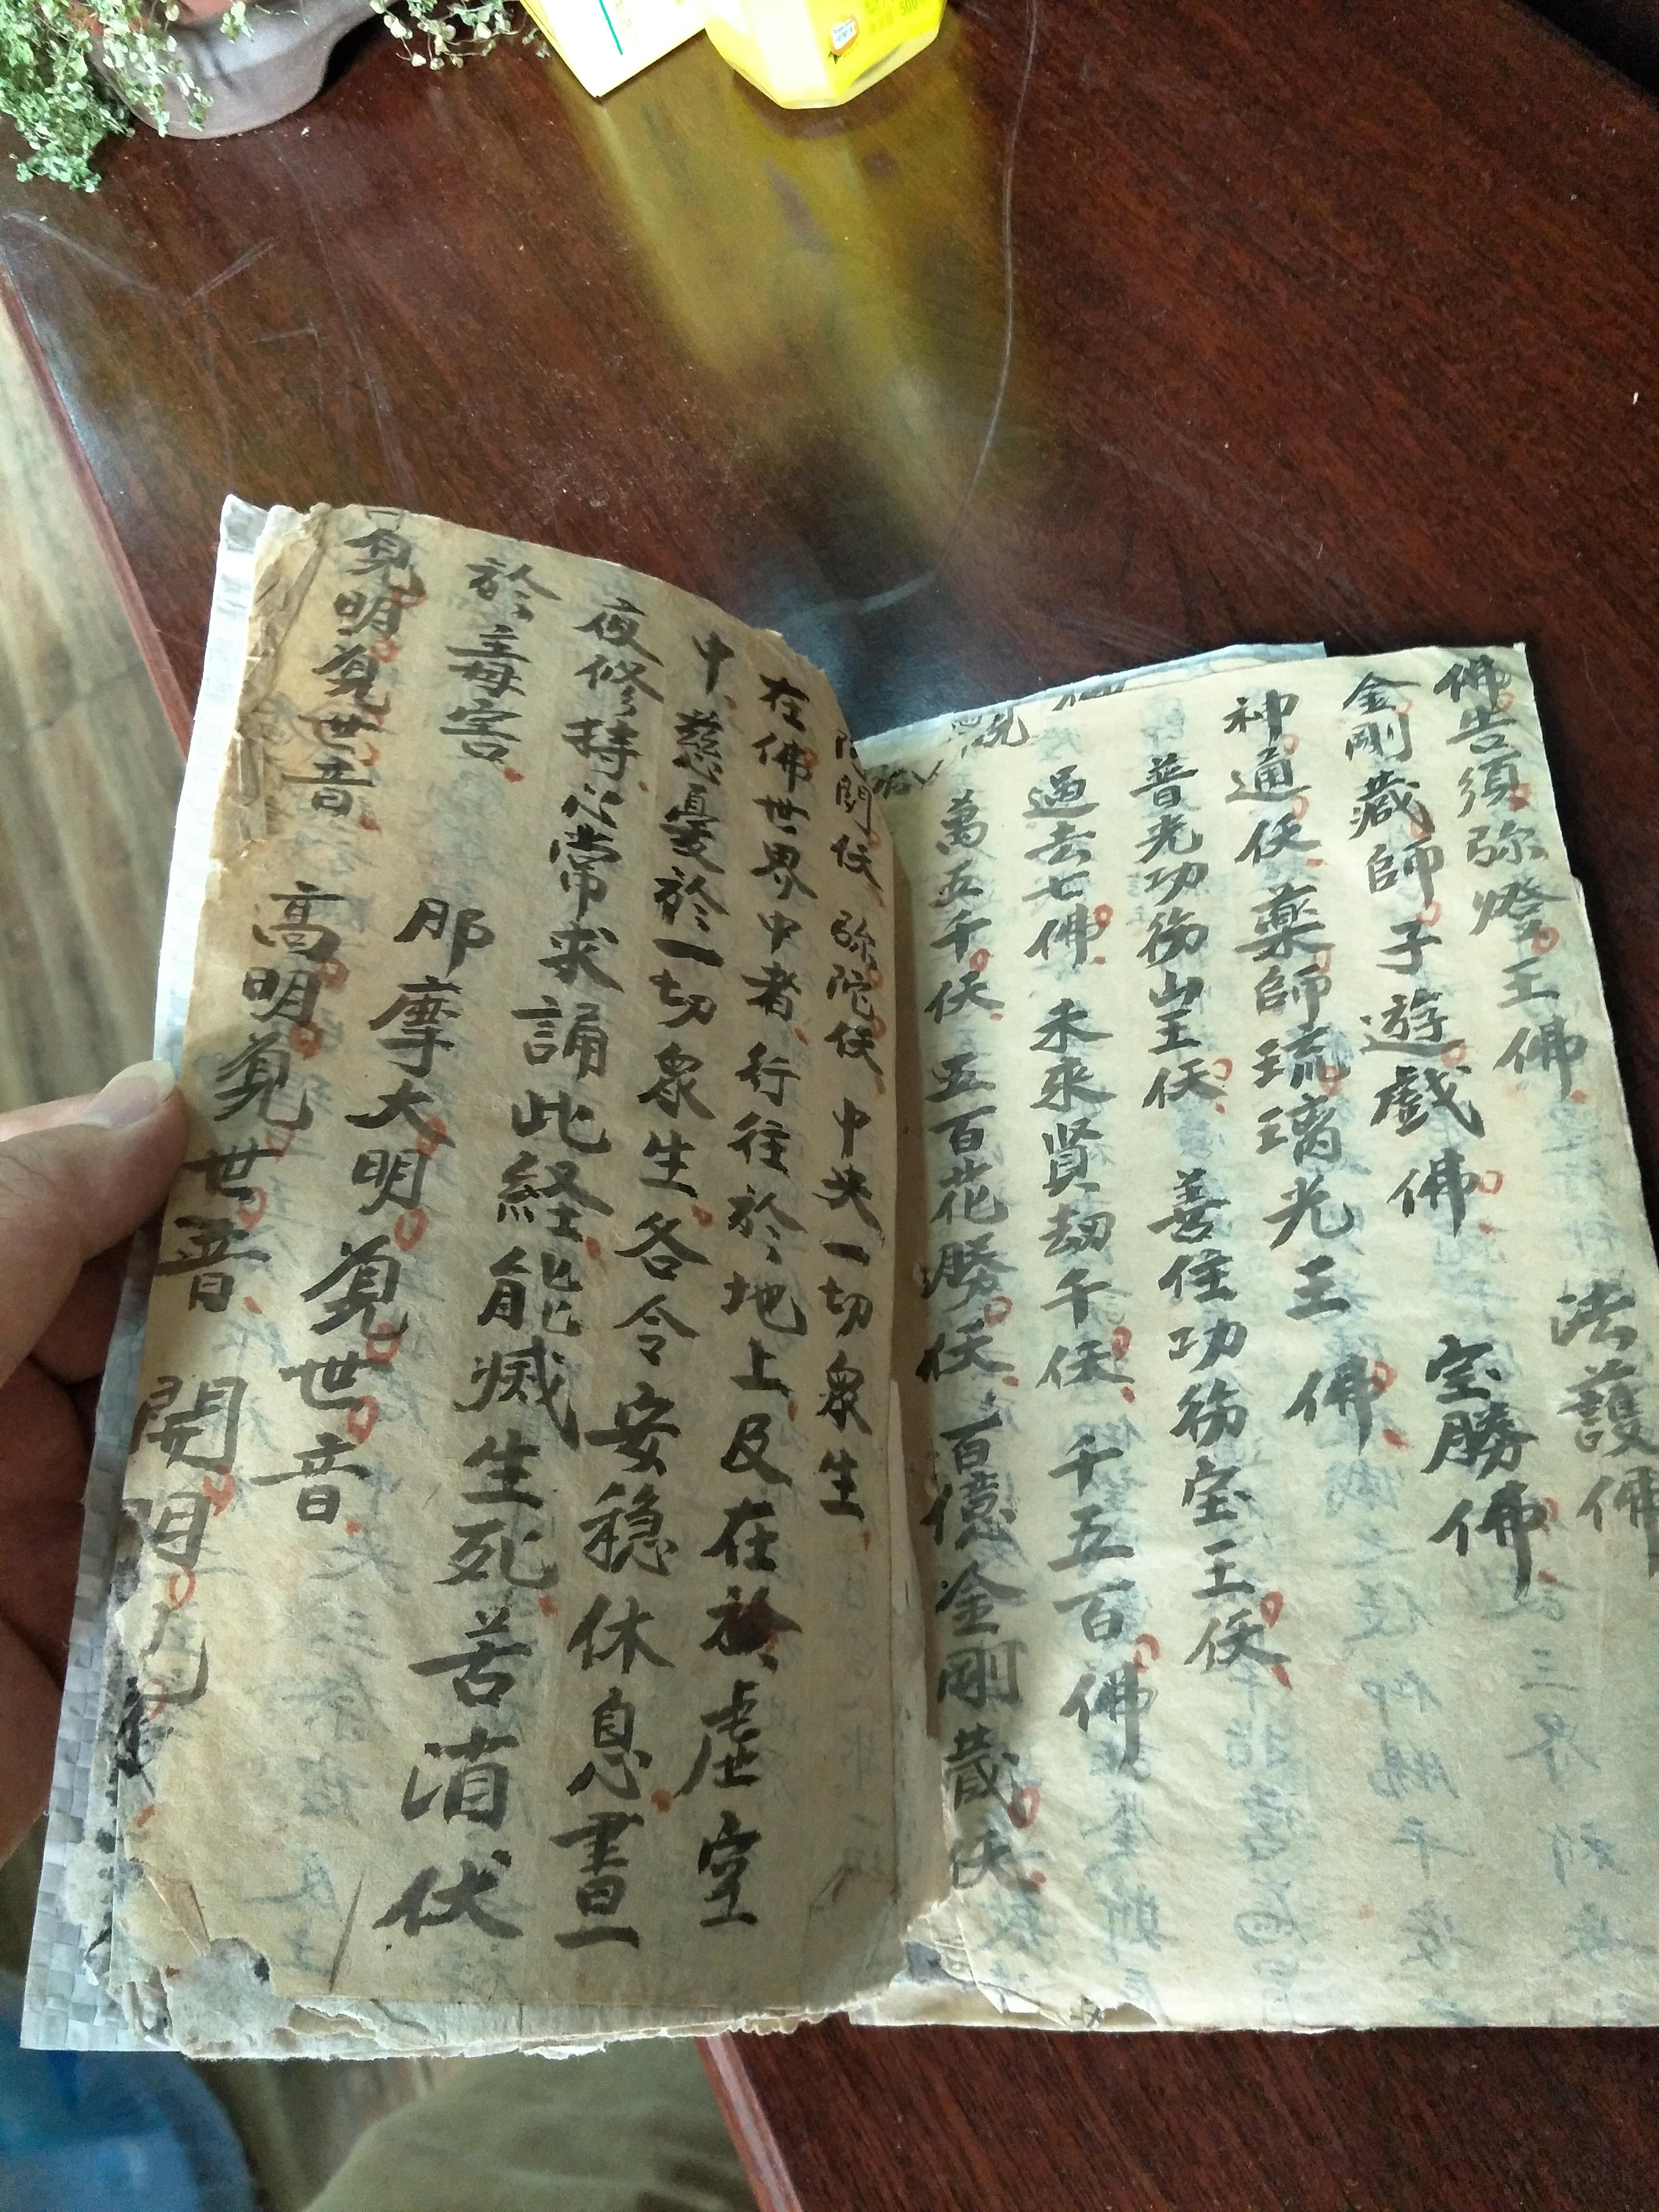 佛告須弥燈王佛 法護佛
金剛藏師子遊戲佛 宝勝佛
神通仸 藥師琉璃光王佛
普光功德山王仸 善住功德宝王仸
過去七佛 未來賢劫千仸 千五百佛
萬五千仸 五百花勝仸 百億金剛藏仸
阿閦仸 弥陀仸 中央一切衆生
在佛世界中者行往於地上及在於虛空
中慈憂於一切衆生各令安穏休息晝
夜修持心常求誦此経能滅生死苦消伏
於毒害 那摩大明覌世音
覌明覌世音 高明覌世音 開明